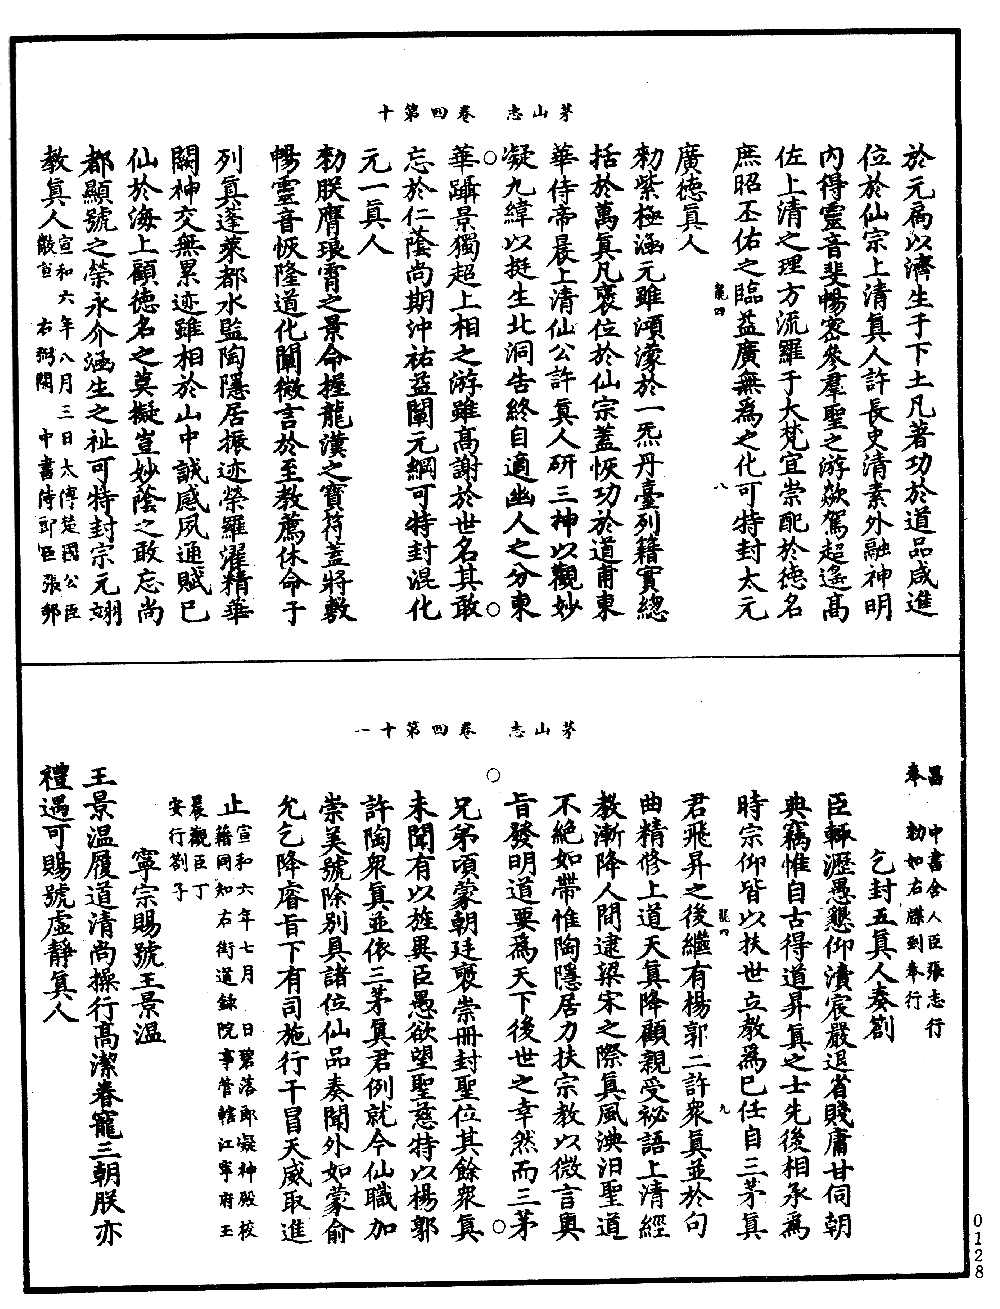 茅山志　卷四第十
於元扃以濟生于下土凡著功於道品咸進
位於仙宗上清真人許長史清素外融神明
內得靈音斐暢密參羣聖之游歘駕超遙高
佐上清之理方流羅于大梵宜崇配於德名
庶昭丕佑之臨益廣無爲之化可特封太元
龍四　八
廣德真人
勑紫極涵元雖澒濛於一炁丹臺列籍實總
括於萬真凡褒位於仙宗蓋恢功於道甫東
華侍帝晨上清仙公許真人研三神以觀妙
凝九緯以挺生北洞告終自適幽人之分東
華躡景獨超上相之游雖高謝於世名其敢
忘於仁蔭尚期沖祐益闡元綱可特封混化
元一真人
勑朕膺琅霄之景命握龍漢之寶符蓋將敷
暢靈音恢隆道化闡微言於至教薦休命于
列真蓬萊都水監陶隱居振迹榮羅濯精華
闕神交無累迹雖相於山中誠感夙通賦已
仙於海上顧德名之莫擬豈妙蔭之敢忘尚
都顯號之榮永介涵生之祉可特封宗元翊
教真人宣和六年八月三日太傅楚國公臣
黻宣　右弼闕　中書侍郎臣張邦
茅山志　卷四第十一
昌　中書舍人臣張志行
奉　勑如右牒到奉行
乞封五真人奏劄
臣輒瀝愚懇仰瀆宸嚴退省賤庸甘伺朝
典竊惟自古得道昇真之士先後相承爲
時宗仰皆以扶世立教爲己任自三茅真
龍四　九
君飛昇之後繼有楊郭二許衆真並於句
曲精修上道天真降顧親受祕語上清經
教漸降人間逮梁宋之際真風泱汨聖道
不絕如帶惟陶隱居力扶宗教以微言奧
旨發明道要爲天下後世之幸然而三茅
兄弟頃蒙朝廷褒崇冊封聖位其餘衆真
未聞有以旌異臣愚欲望聖慈特以楊郭
許陶衆真並依三茅真君例就今仙職加
崇美號除別具諸位仙品奏聞外如蒙俞
允乞降睿旨下有司施行干冒天威取進
止宣和六年七月　日碧落郎凝神殿校
籍同知右街道錄院事管轄江寧府玉
晨觀臣丁
安行劄子
寧宗賜號王景溫
王景溫履道清尚操行高潔眷寵三朝朕亦
禮遇可賜號虛靜真人
0128